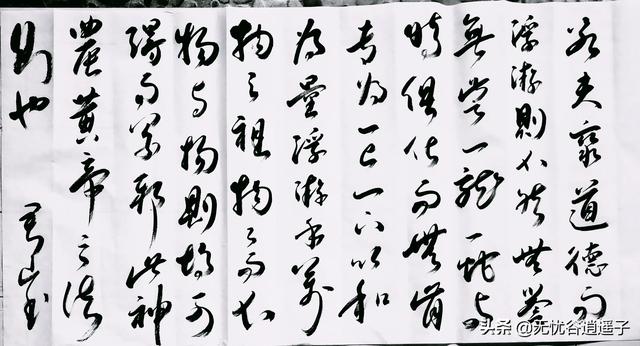 若夫乘道德而
浮游則不然無譽
無訾一龍一蛇與
時俱化而無肯
專為一上一下以和
為量浮游乎萬
物之祖物物而不
物於物則胡可
得而累邪此神
農黃帝之法
則也
头条 @无忧谷逍遥子